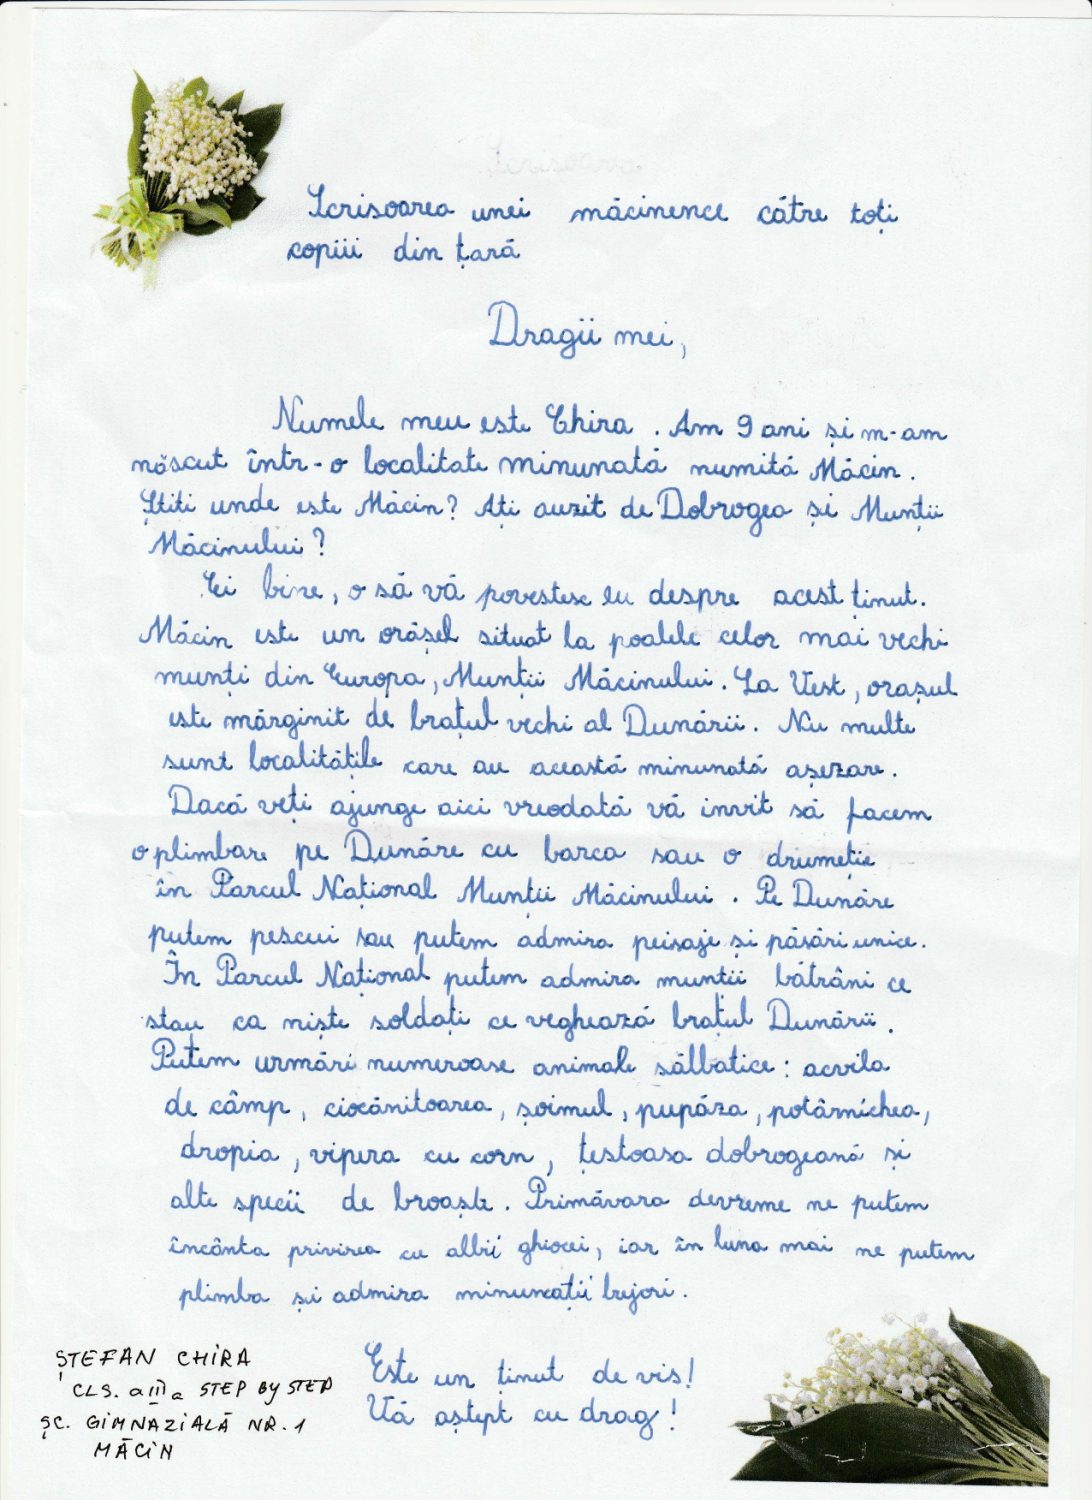 Scrisoarea unei măcinence către toți
copiii din țară
Dragii mei,
Numele meu este Chira. Am 9 ani și m-am
născut într-o localitate minunată numită Măcin.
Știți unde este Măcin? Ați auzit de Dobrogea și Munții
Măcinului?
Ei bine, o să vă povestesc eu despre acest ținut.
Măcin este un orășel situat la poalele celor mai vechi
munți din Europa, Munții Măcinului. La Vest, orașul
este mărginit de brațul vechi al Dunării. Nu multe
sunt localitățile care au această minunată așezare.
Dacă veți ajunge aici vreodată vă invit să facem
o plimbare pe Dunăre cu barca sau o drumeție
în Parcul Național Munții Măcinului. Pe Dunăre
putem pescui sau putem admira peisaje și păsări unice.
În Parcul Național putem admira muntii bătrâni ce
stau ca niște soldați ce veghează brațul Dunării.
Putem urmări numeroase animale sălbatice: acvila
de câmp, ciocănitoarea, șoimul, pupăza, potârnichea,
dropia, vipera cu corn, țestoasa dobrogeană și
alte specii de broaște. Primăvara devreme ne putem
încânta privirea cu albii ghiocei, iar în luna mai ne putem
plimba și admira minunații bujori.
Este un ținut de vis!
Vă aștept cu drag!
ȘTEFAN CHIRA
CLS. a III a STEP BY STEP
ȘC. GIMNAZIALĂ NR. 1
MĂCIN